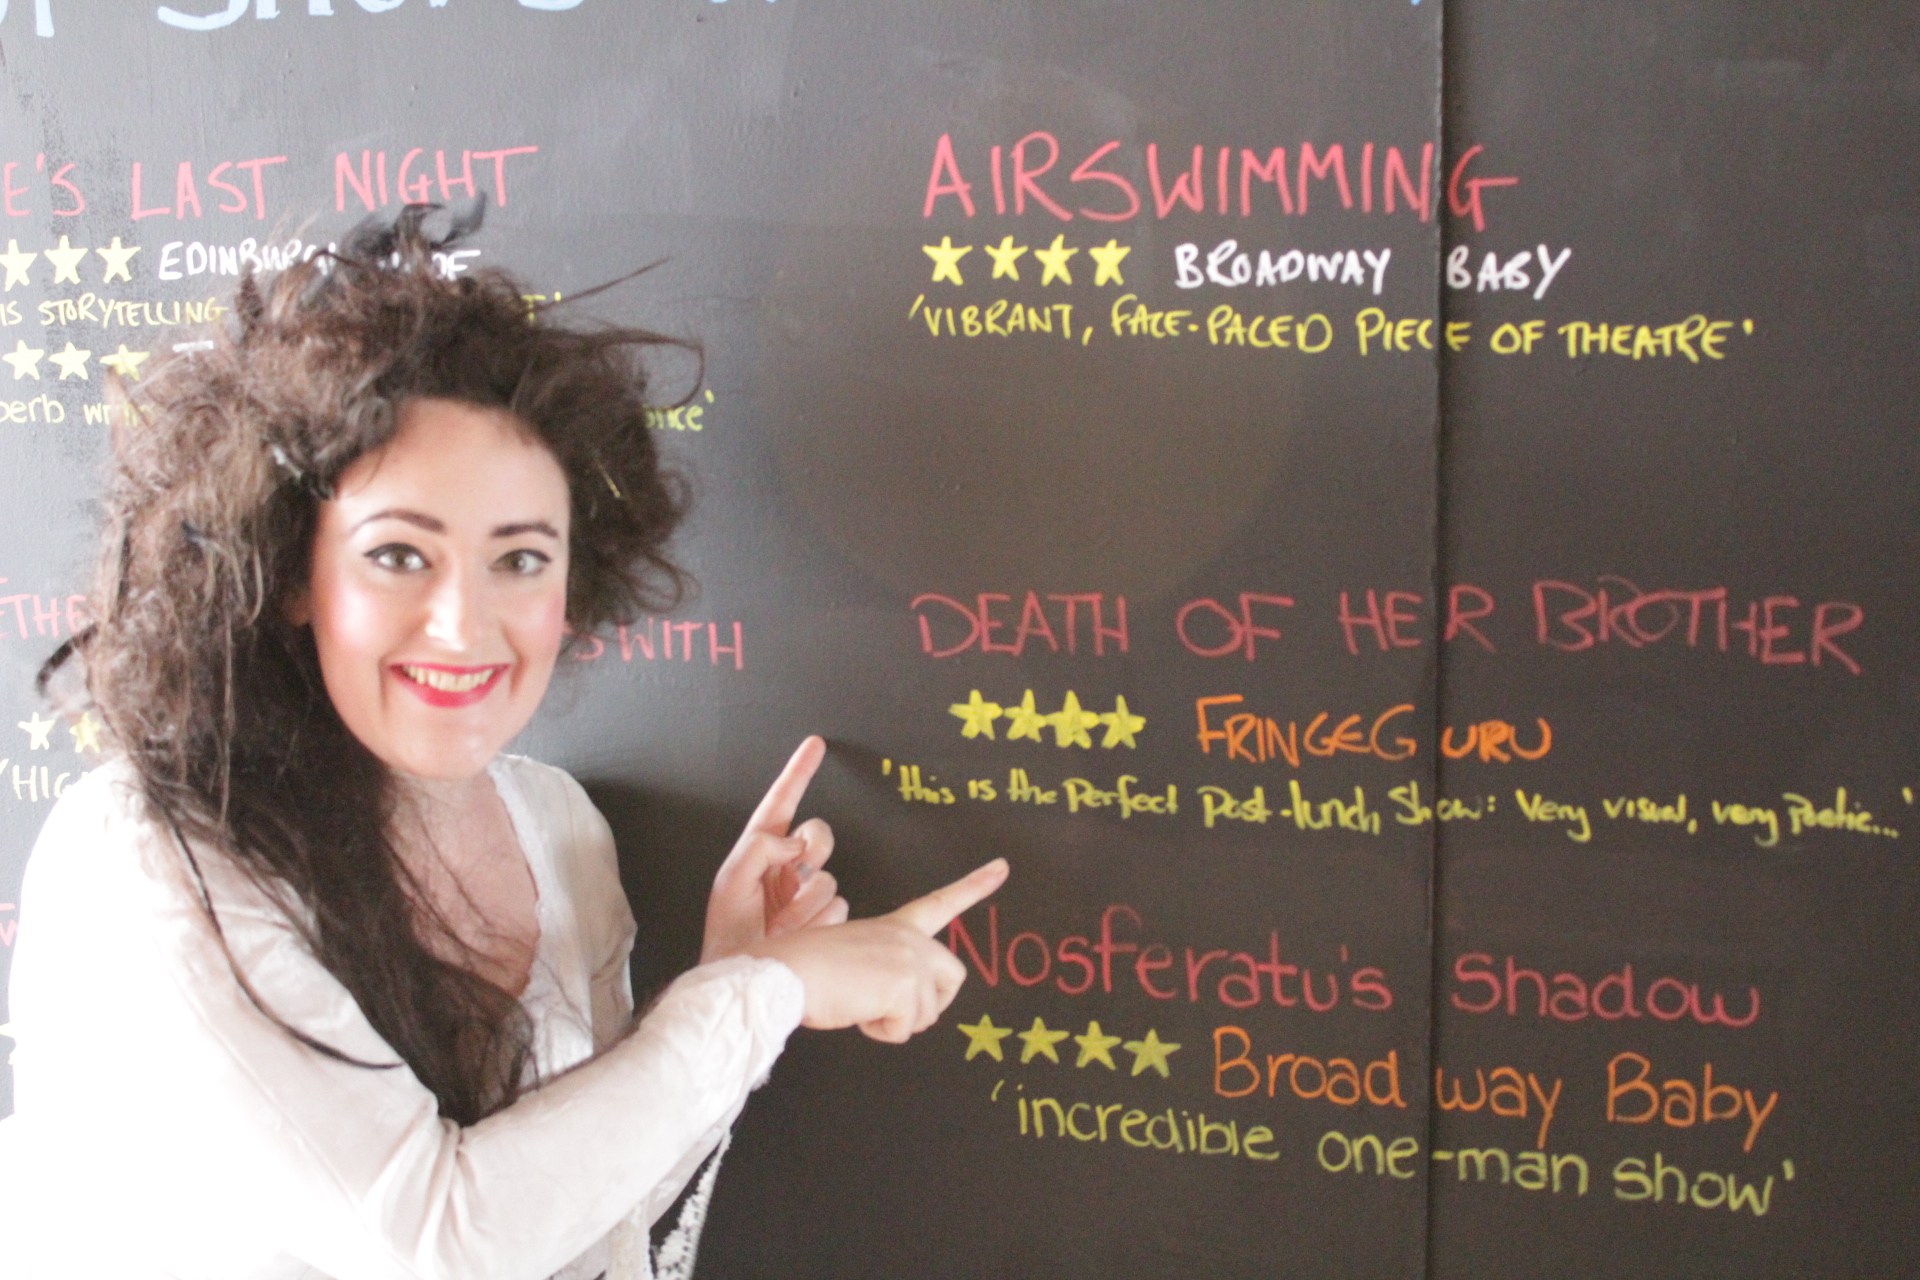 E'S LAST NIGHT
★★★ EDINBURGH GUIDE
IS STORYTELLING
★★★
WITH
★★
AIRSWIMMING
★★★★ BROADWAY BABY
'VIBRANT, FACE-PACED PIECE OF THEATRE'
DEATH OF HER BROTHER
★★★★ FRINGEGURU
'this is the perfect post-lunch show: Very visual, very poetic...'
Nosferatu's Shadow
★★★★ Broadway Baby
'incredible one-man show'